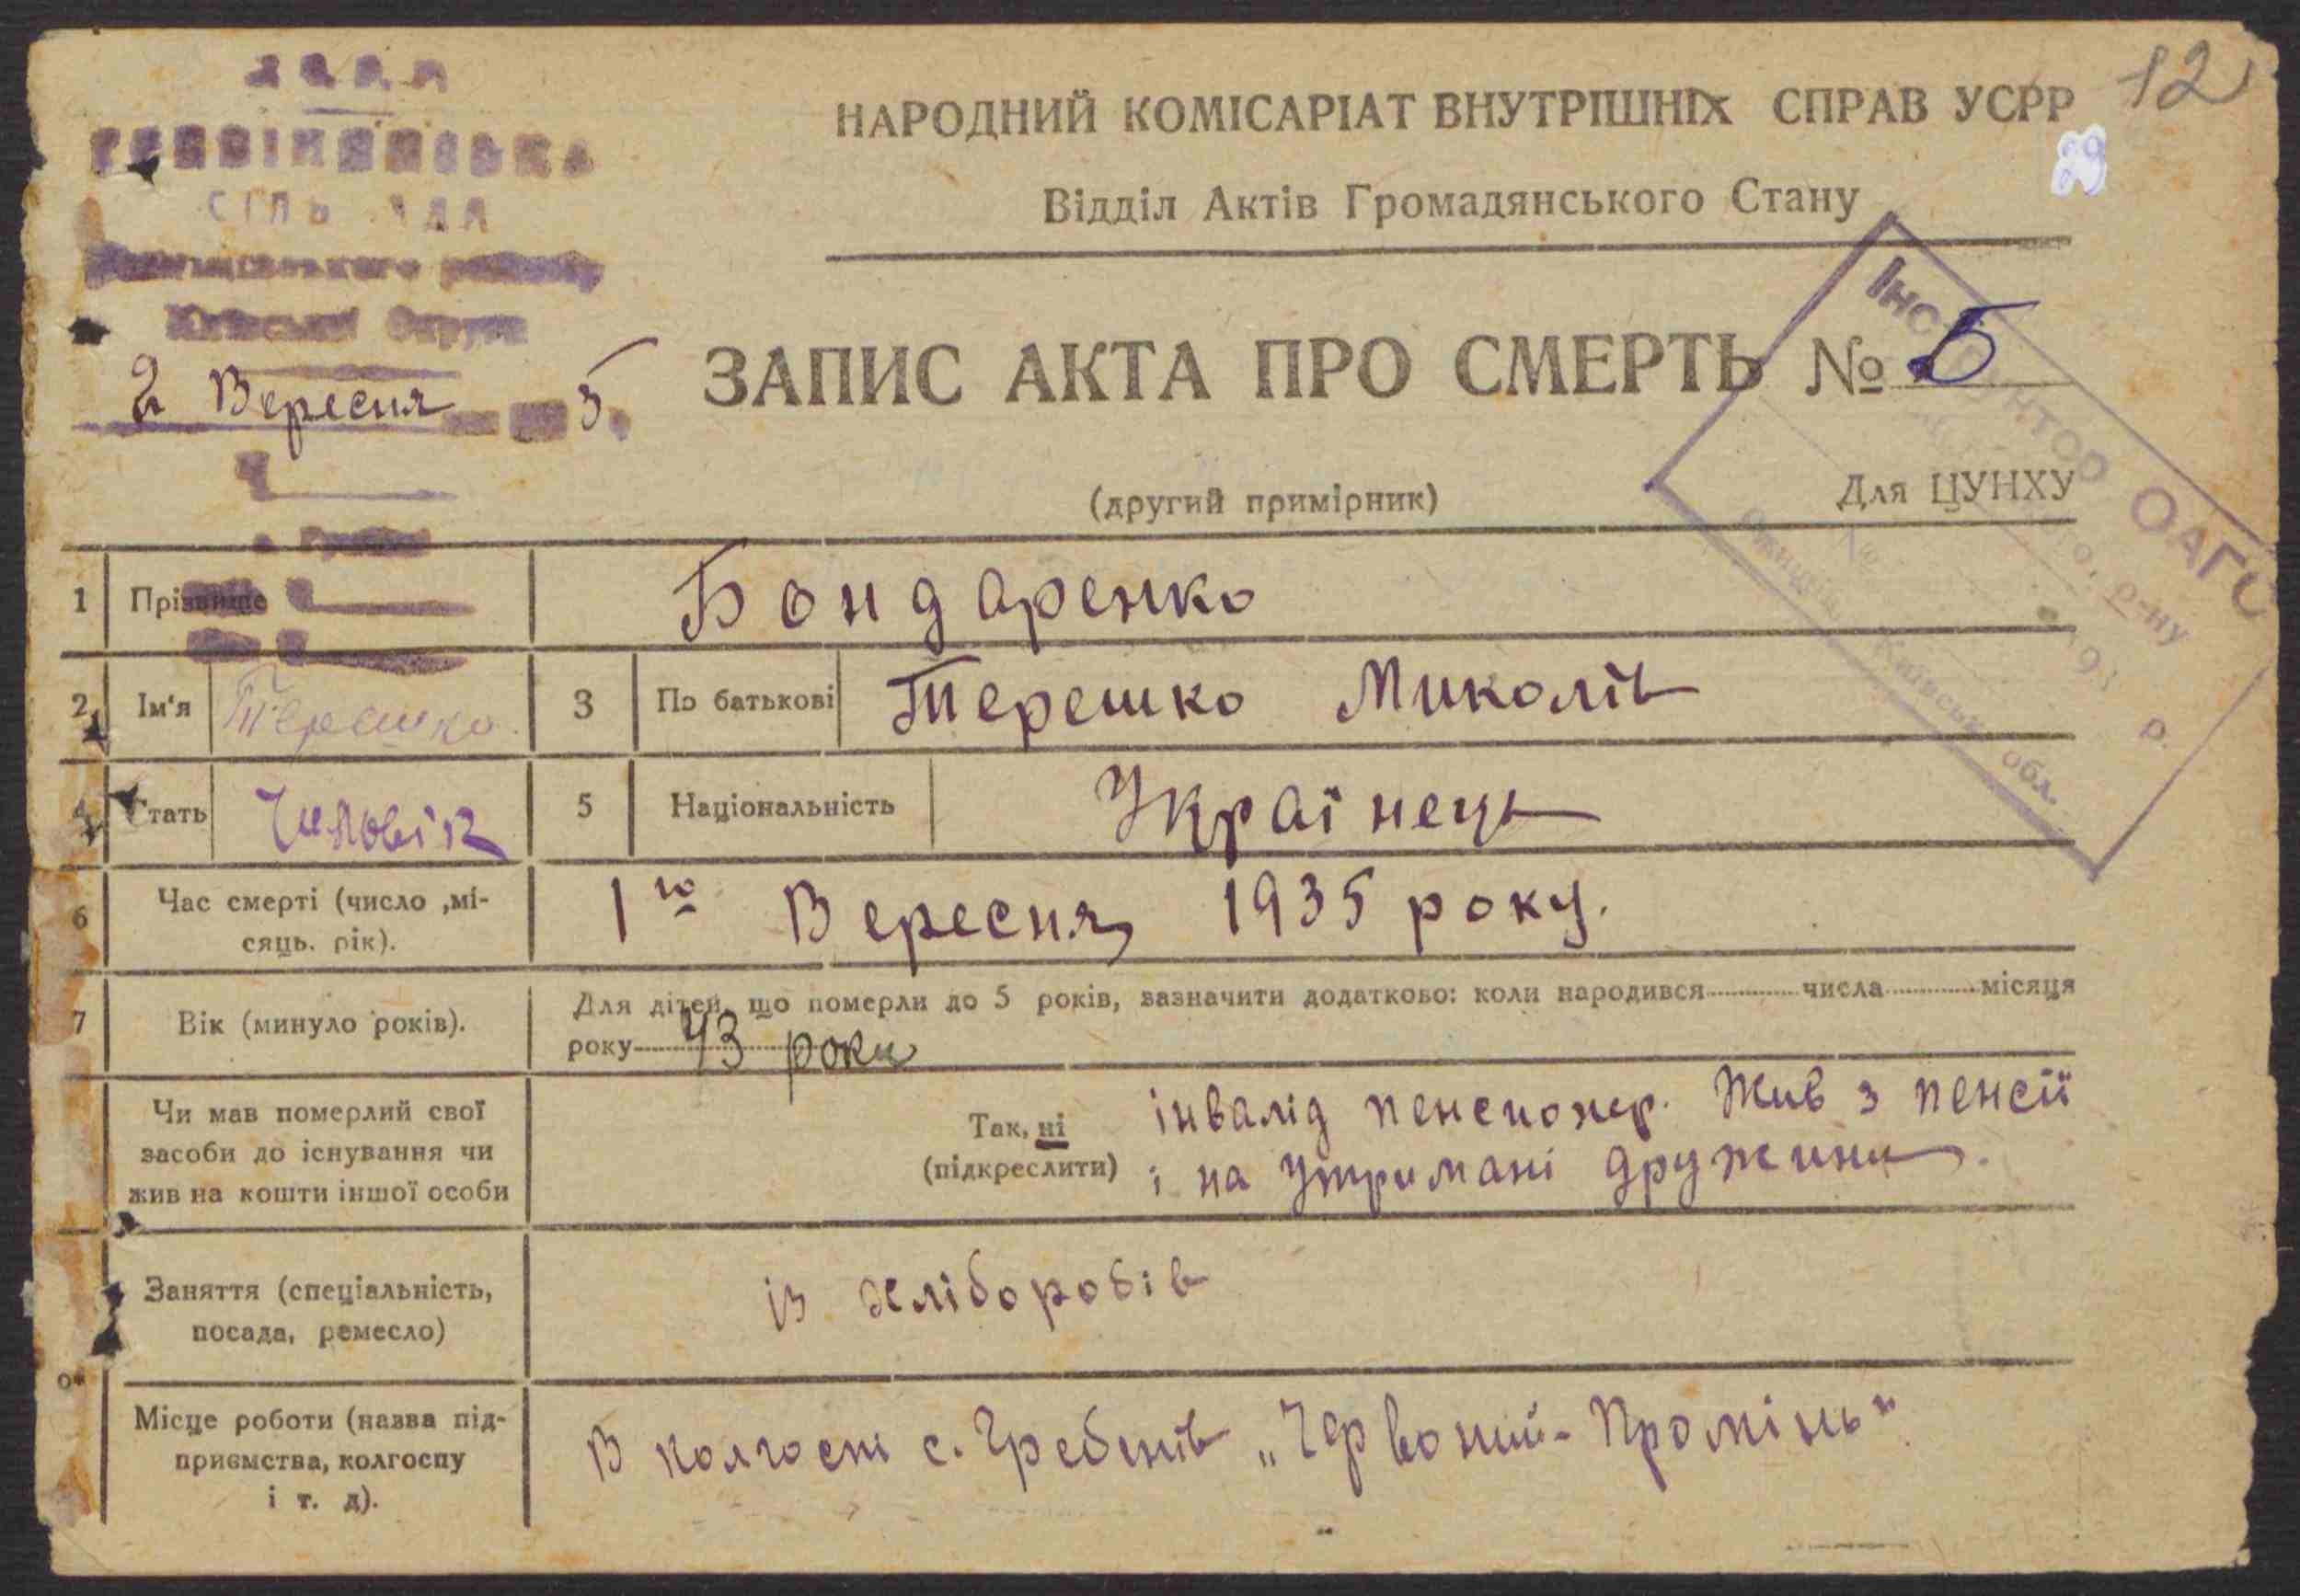 12
НАРОДНИЙ КОМІСАРІАТ ВНУТРІШНІХ СПРАВ УСРР
29
Відділ Актів Громадянського Стану
СІЛЬ АДА
району
Київської Округи
2 Вересня 5
ЗАПИС АКТА ПРО СМЕРТЬ № 5
(другий примірник)
Для ЦУНХУ
ОАГС
р-ну
193 р.
Київськ. обл.
1 Прізвище Бондаренко
2 Ім'я Терешко 3 По батькові Терешко Миколів
4 Стать Чиловік 5 Національність Українець
6 Час смерті (число ,мі-
сяць. рік). 1го Вересня 1935 року.
7 Вік (минуло років). Для дітей, що померли до 5 років, зазначити додатково: коли народився числа місяця
року 43 роки
Чи мав померлий свої
засоби до існування чи
жив на кошти іншої особи
Так, ні
(підкреслити)
інвалід пенсионер. Жив з пенсії
і на утримані дружини.
Заняття (спеціальність,
посада, ремесло)
із хліборобів
Місце роботи (назва під-
приємства, колгоспу
і т. д).
В колгоспі с. Гребенів „Червоний-Промінь"